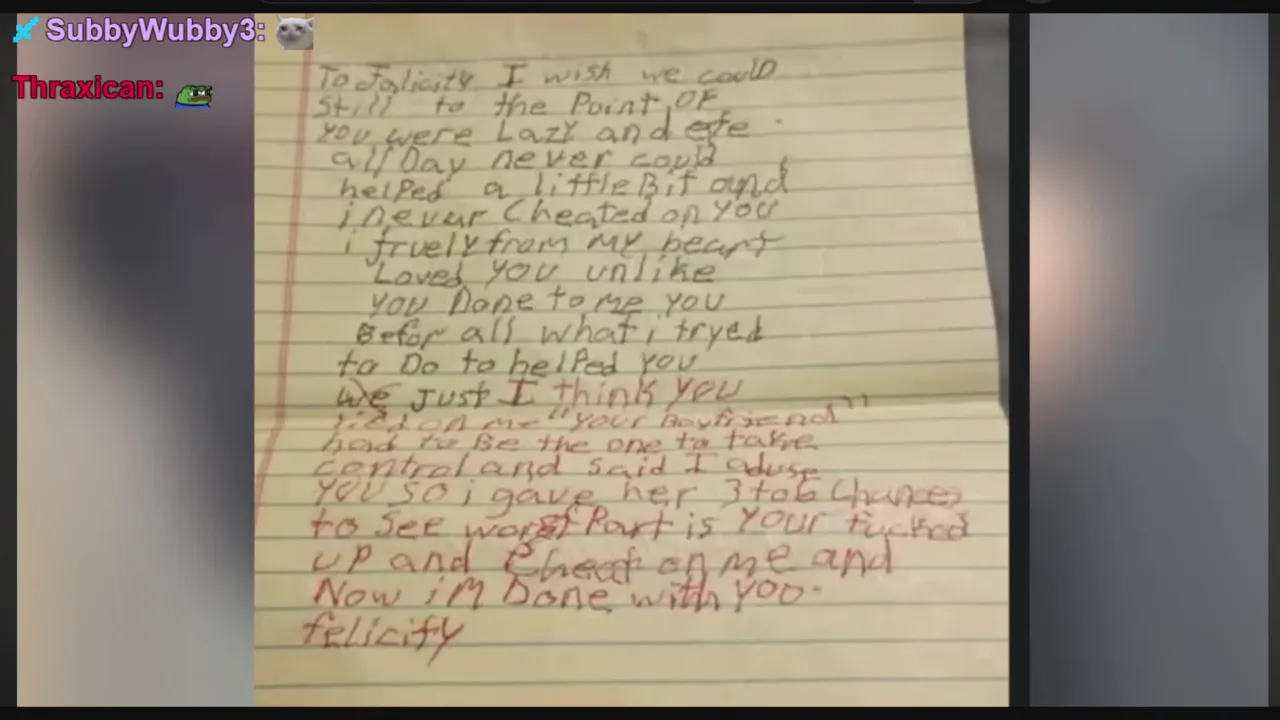 SubbyWubby3:
Thraxican:
To Falicity I wish we could
still to the Point OF
you were Lazy and
all Day never could
helped a little Bit and
i never Cheated on You
i truely from my heart
Loved you unlike
you Done to me you
Befor all what i tryed
to Do to helped you
We Just I think you
lied on me "your Boyfriend"
had to Be the one to take
control and said I aduse
you so i gave her 3 to 6 Chances
to see worst Part is your fucked
up and Cheat on me and
Now iM Done with you.
felicity